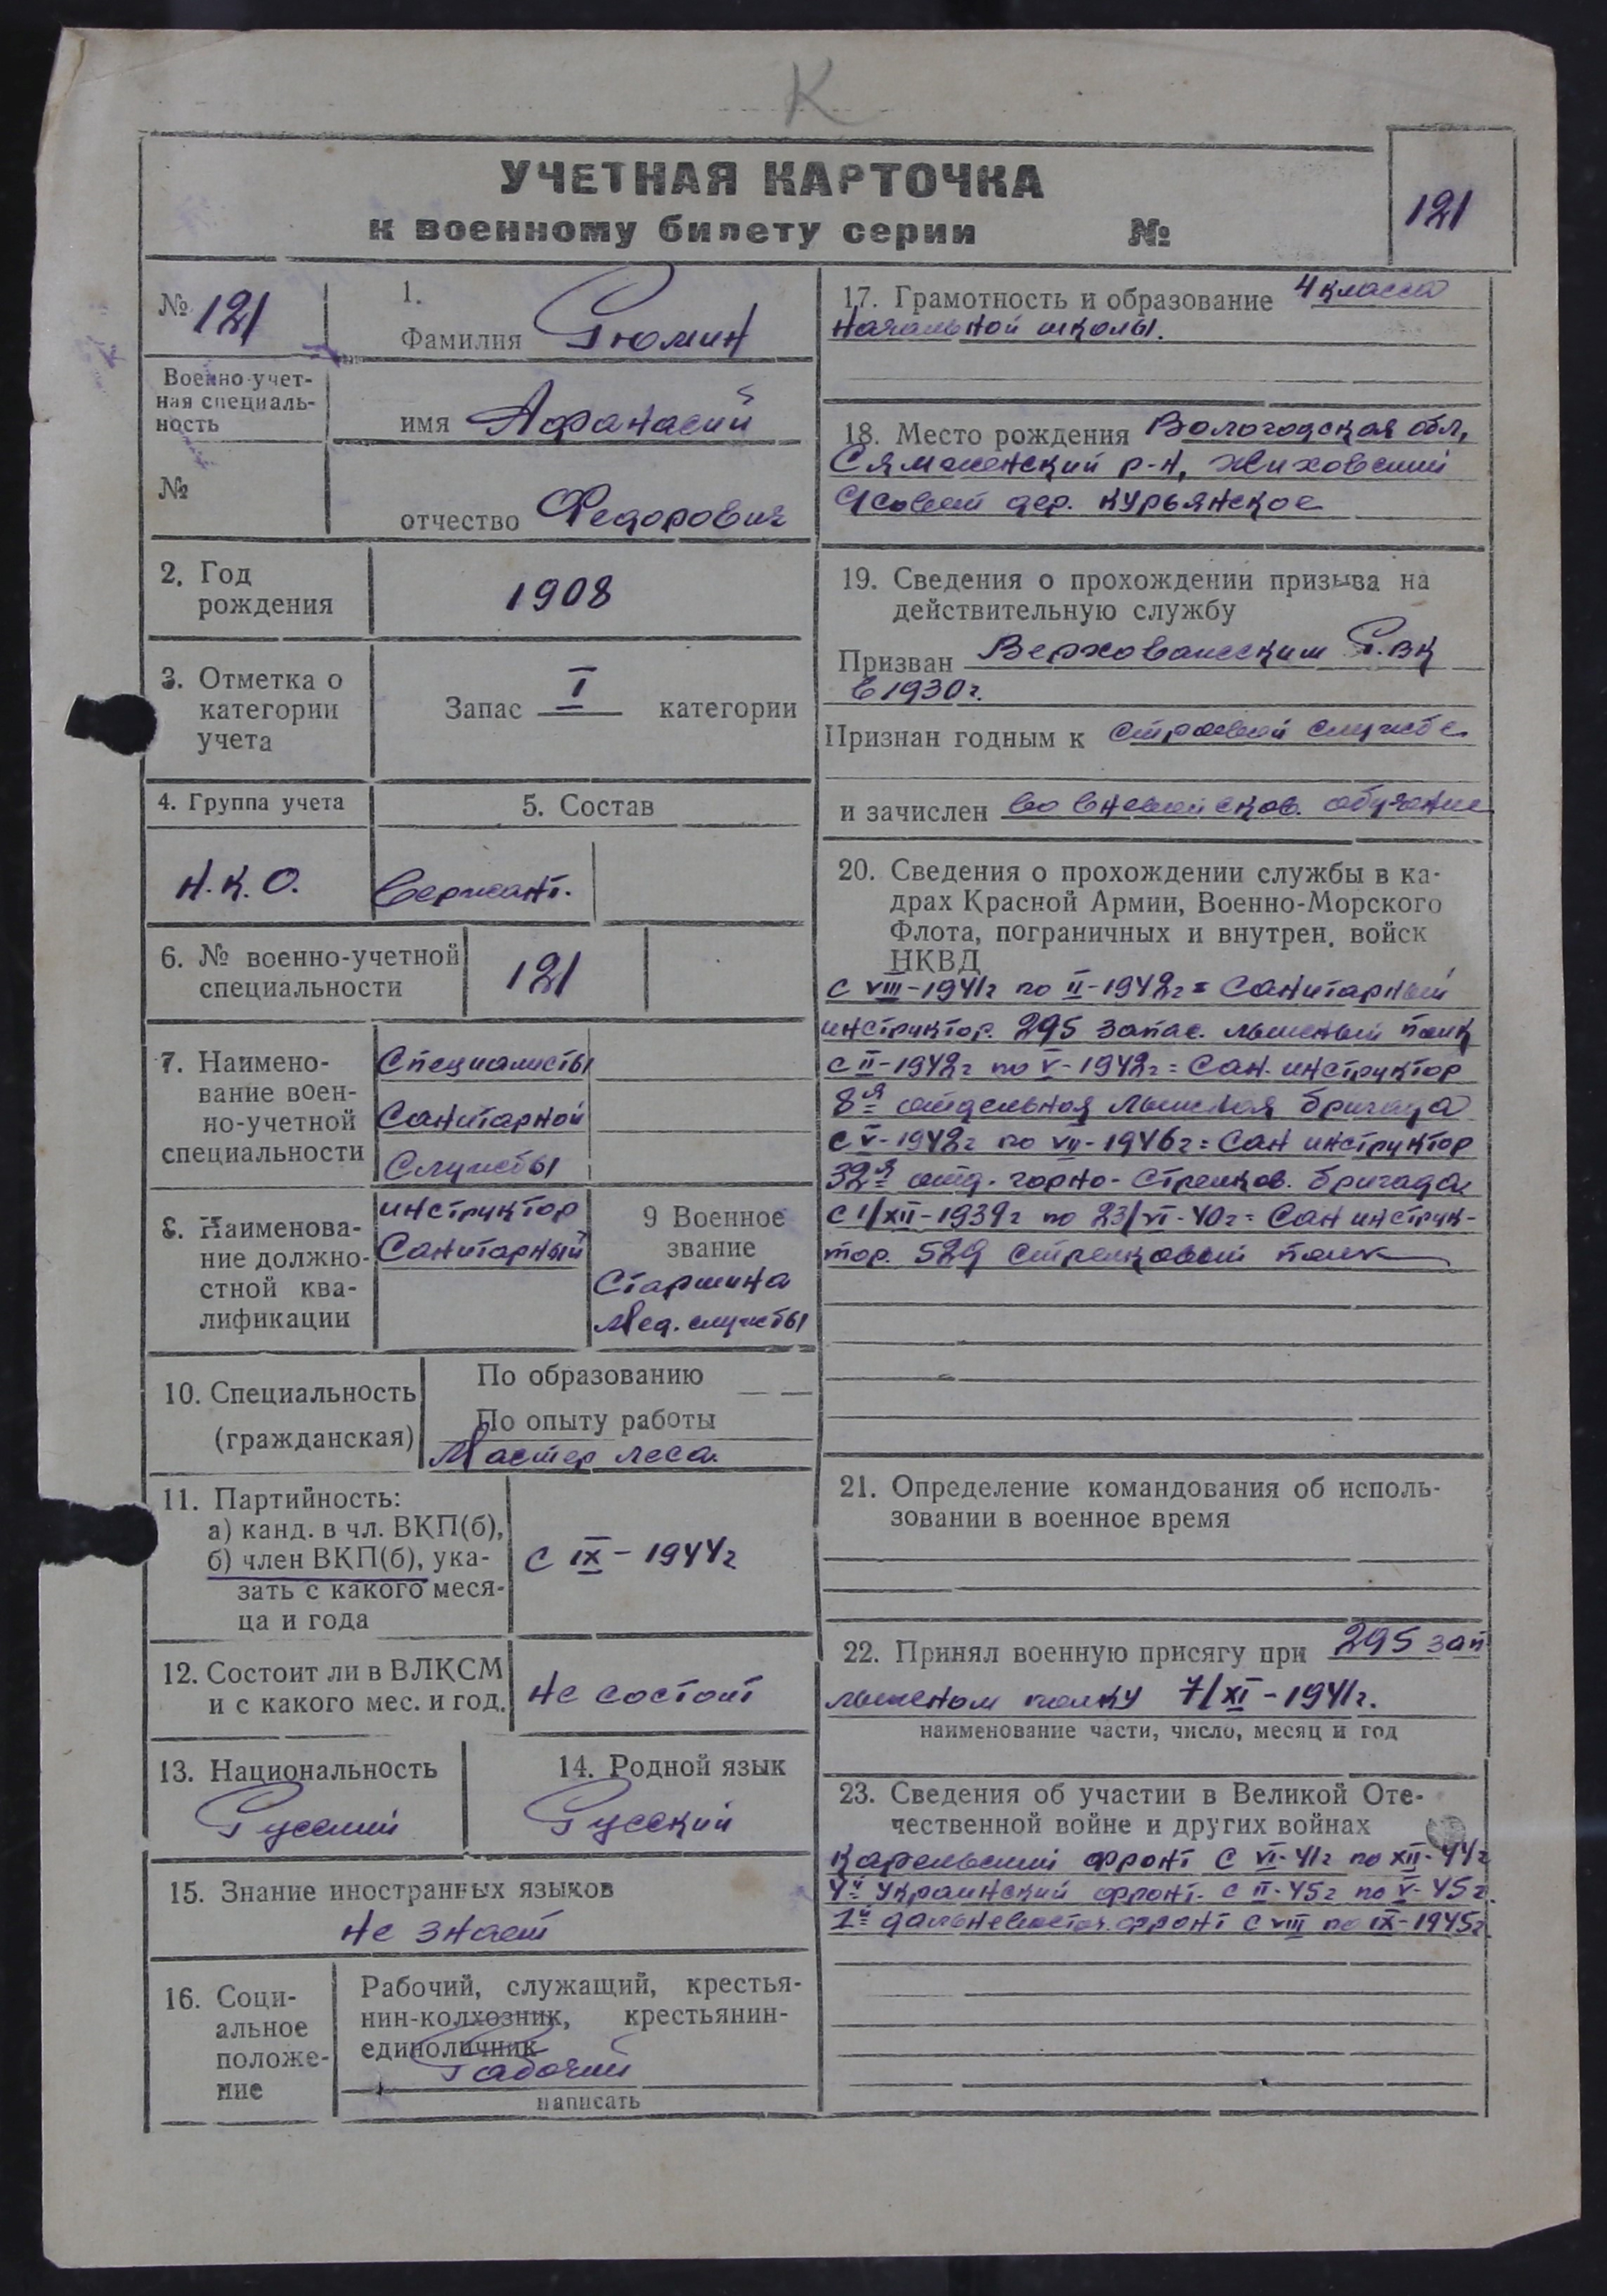 К
УЧЕТНАЯ КАРТОЧКА
к военному билету серии №
121
№ 121
1.
Фамилия Рюмин
Военно-учет-
ная специаль-
ность
имя Афанасий
№
отчество Федорович
2. Год
рождения
1908
3. Отметка о
категории
учета
Запас I категории
4. Группа учета
5. Состав
Н.К.О.
Сержант.
6. № военно-учетной
специальности
121
7. Наимено-
вание воен-
но-учетной
специальности
Специалисты
Санитарной
Службы
8. Наименова-
ние должно-
стной ква-
лификации
инструктор
Санитарный
9 Военное
звание
Старшина
Мед. службы
10. Специальность
(гражданская)
По образованию — —
По опыту работы
Мастер леса.
11. Партийность:
а) канд. в чл. ВКП(б),
б) член ВКП(б), ука-
зать с какого меся-
ца и года
с IX – 1944г
12. Состоит ли в ВЛКСМ
и с какого мес. и год.
не состоит
13. Национальность
Русский
14. Родной язык
Русский
15. Знание иностранных языков
не знает
16. Соци-
альное
положе-
ние
Рабочий, служащий, крестья-
нин-колхозник, крестьянин-
единоличник
Рабочий
написать
17. Грамотность и образование 4 класса
начальной школы.
18. Место рождения Вологодская обл,
Сямженский р-н,
совет дер. Курьянское
19. Сведения о прохождении призыва на
действительную службу
Призван Верховажским Р.ВК
в 1930г.
Признан годным к строевой службе
и зачислен во вневойсков. обучение
20. Сведения о прохождении службы в ка-
драх Красной Армии, Военно-Морского
Флота, пограничных и внутрен. войск
НКВД
с VIII-1941г по II-1942г = Санитарный
инструктор. 295 запас. лыжный полк
с II-1942г по V-1942г = Сан. инструктор
8я отдельная лыжная бригада
с V-1942г по VII-1946г = Сан инструктор
32я отд. горно-стрелков. бригада
с 1/XII-1939г по 23/VI-40г = Сан инструк-
тор. 529 стрелковый полк
21. Определение командования об исполь-
зовании в военное время
22. Принял военную присягу при 295 зап
лыжном полку 7/XI-1941г.
наименование части, число, месяц и год
23. Сведения об участии в Великой Оте-
чественной войне и других войнах
Карельский фронт с VI-41г по XII-44г
4й Украинский фронт. с II-45г по V-45г.
1й дальневосточ. фронт с VIII по IX-1945г.